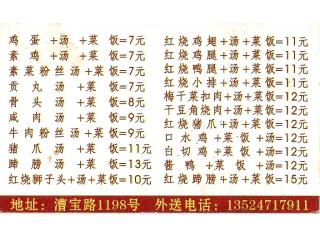 鸡 蛋 +汤 +菜 饭=7元
素 鸡 +汤 +菜 饭=7元
素菜粉丝汤+菜饭=7元
贡 丸 汤 +菜 饭=7元
骨 头 汤 +菜 饭=8元
咸 肉 汤 +菜 饭=9元
牛肉粉丝汤+菜饭=9元
猪 爪 +汤+菜 饭=11元
蹄 膀 +汤+菜 饭=13元
红烧狮子头+汤+菜饭=10元
红烧鸡翅+汤+菜饭=11元
红烧鸡腿+汤+菜饭=11元
红烧鸭腿+汤+菜饭=11元
红烧小排+汤+菜饭=11元
梅干菜扣肉+汤+菜饭=12元
干豆角烧肉+汤+菜饭=12元
红烧猪爪+汤+菜饭=12元
口 水 鸡 +汤 +菜 饭=12元
白 切 鸡 +汤 +菜 饭=12元
酱 鸭 +汤 +菜 饭=12元
红烧蹄膀+汤+菜饭=15元
地址：漕宝路1198号 外送电话：13524717911